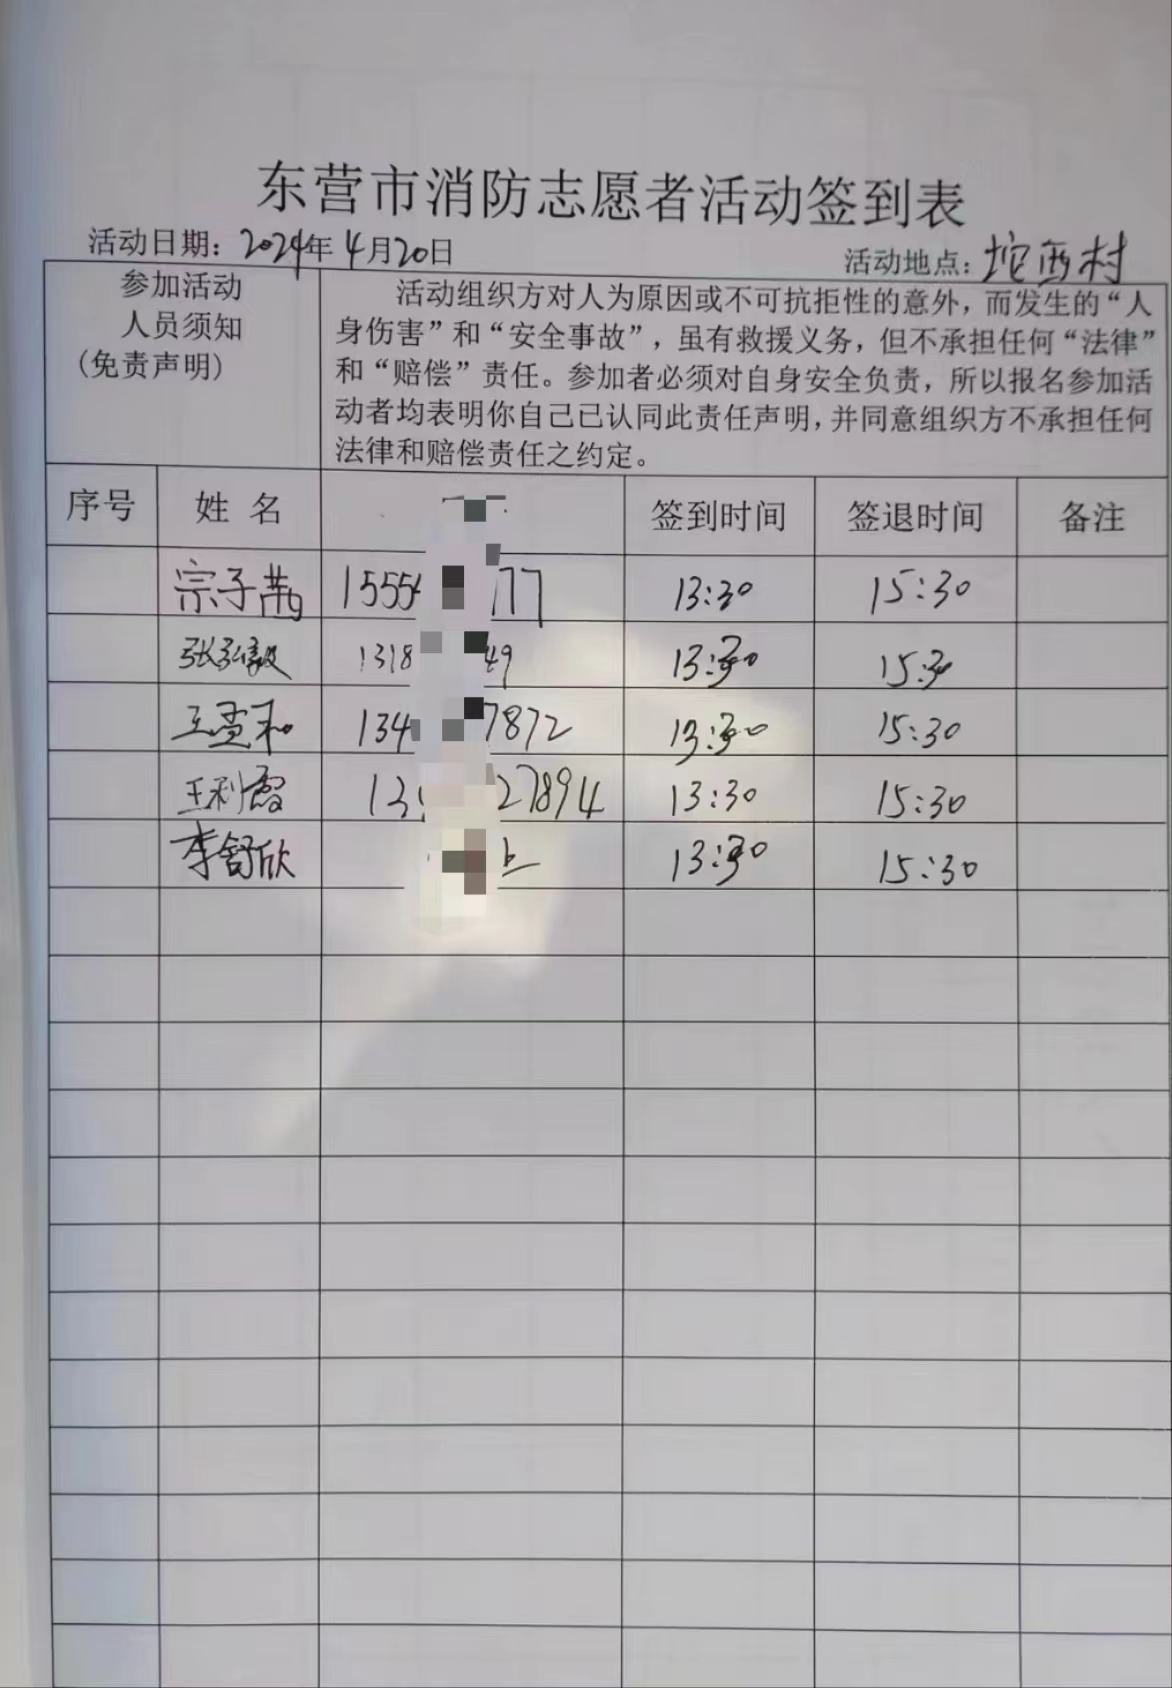 东营市消防志愿者活动签到表
活动日期：2024年4月20日 活动地点：坨西村
参加活动
人员须知
（免责声明）
活动组织方对人为原因或不可抗拒性的意外，而发生的“人
身伤害”和“安全事故”，虽有救援义务，但不承担任何“法律”
和“赔偿”责任。参加者必须对自身安全负责，所以报名参加活
动者均表明你自己已认同此责任声明，并同意组织方不承担任何
法律和赔偿责任之约定。
序号 姓名 签到时间 签退时间 备注
宗子茜 1555 77 13:30 15:30
张弘毅 1318 49 13:30 15:3
王孟和 134 7872 13:30 15:30
王利霞 13 27894 13:30 15:30
李舒欣 13:30 15:30